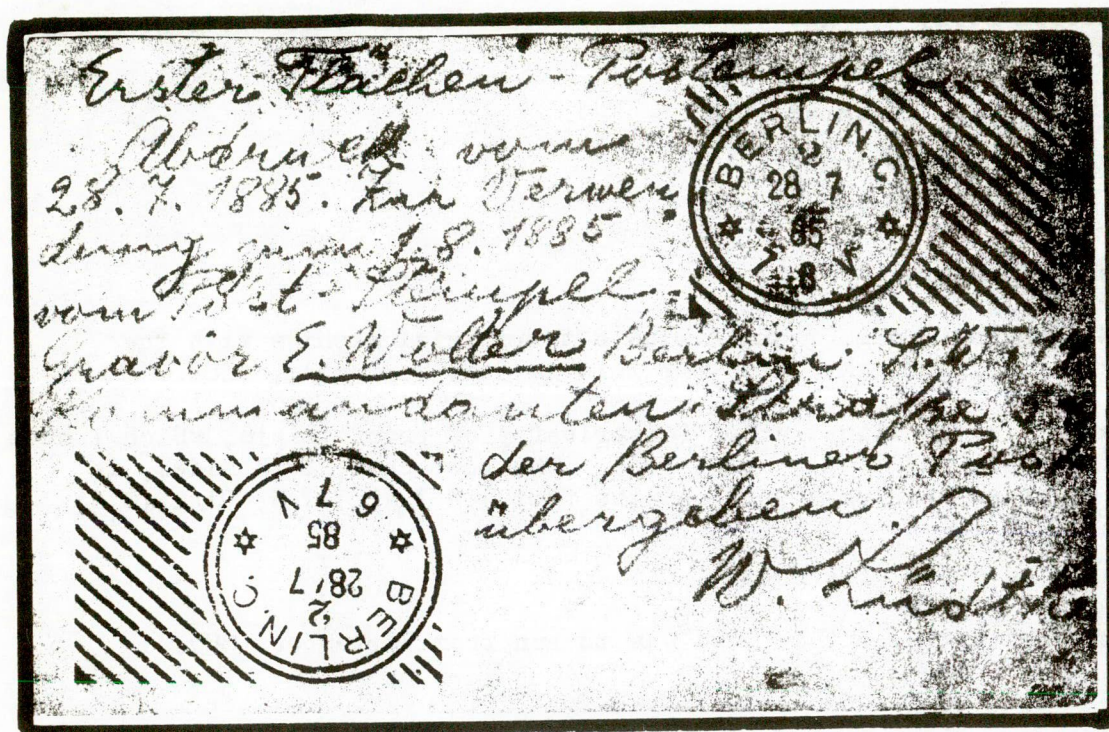 Erster Flächen - Postempel
Abdruck vom
28. 7. 1885. Zur Verwen
dung zum 1. 8. 1885
vom Post-Stempel
Gravör E. Wolter Berlin S.W.
Kommandanten Straße
der Berliner Post
übergeben
W.
BERLIN. C.
2
28 7
85
BERLIN. C.
2
28 7
85
6 7 V